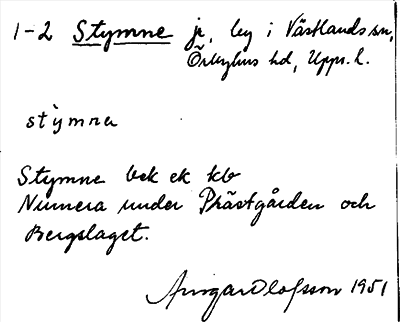 1-2 Stymne jr, by i Västlands sn,
Örbyhus hd, Upps. l.
stymna
Stymne bek ek kb
Numera under Prästgården och
Bergslaget.
Olofsson 1951